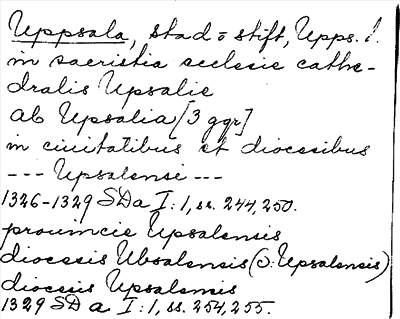 Uppsala, stad o stift, Upps. l.
in sacristia ecclesie cathe-
dralis Upsalie
ab Upsalia [3 ggr]
in ciuitatibus et diocesibus
--- Upsalensi ---
1326-1329 SD a I:1, ss. 244, 250.
prouincie Upsalensis
diocesis Ubsalensis (o: Upsalensis)
diocesis Upsalensis
1329 SD a I:1, ss. 254, 255.